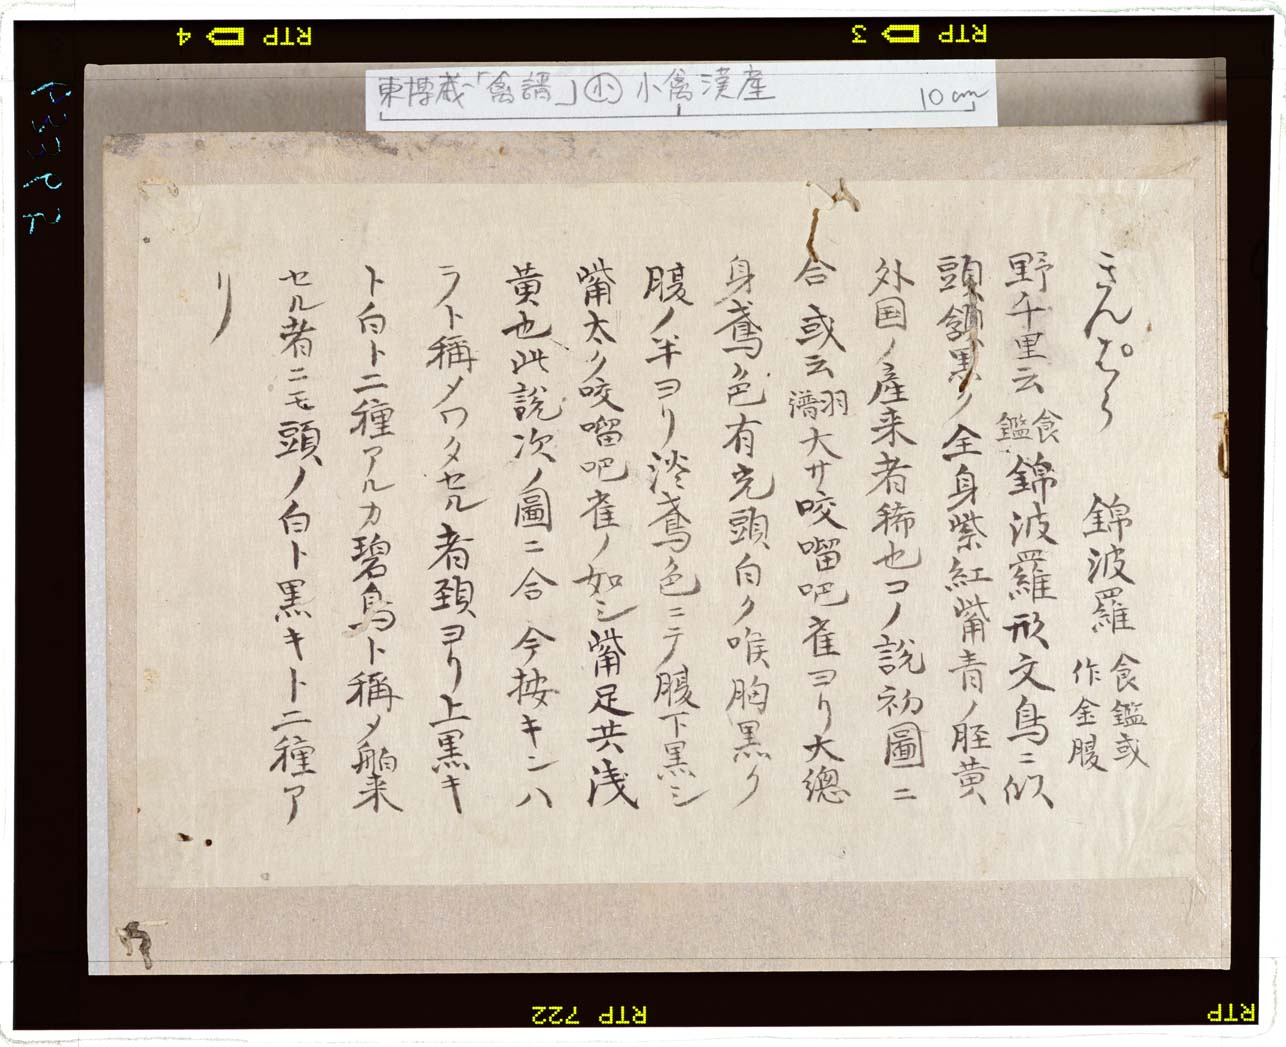 RTP 4
RTP 3
東博蔵「禽譜」㋛ 小禽漢産
10cm
きんぱら 錦波羅 食鑑或作金腹
野千里云 食鑑 錦波羅形文鳥ニ似
頭頷黒ク全身紫紅觜青ノ脛黄
外国ノ産来者稀也コノ説初圖ニ
合 或云 羽譜 大サ咬𠺕吧雀ヨリ大總
身鳶ノ色有光頭白ク喉胸黒ク
腹ノ半ヨリ淡鳶色ニテ腹下黒シ
觜太ク咬𠺕吧雀ノ如シ觜足共浅
黄也此説次ノ圖ニ合 今按キンハ
ラト稱メワタセル者頚ヨリ上黒キ
ト白ト二種アルカ碧鳥ト稱メ舶来
セル者ニモ頭ノ白ト黒キト二種ア
リ
RTP 722
RTP